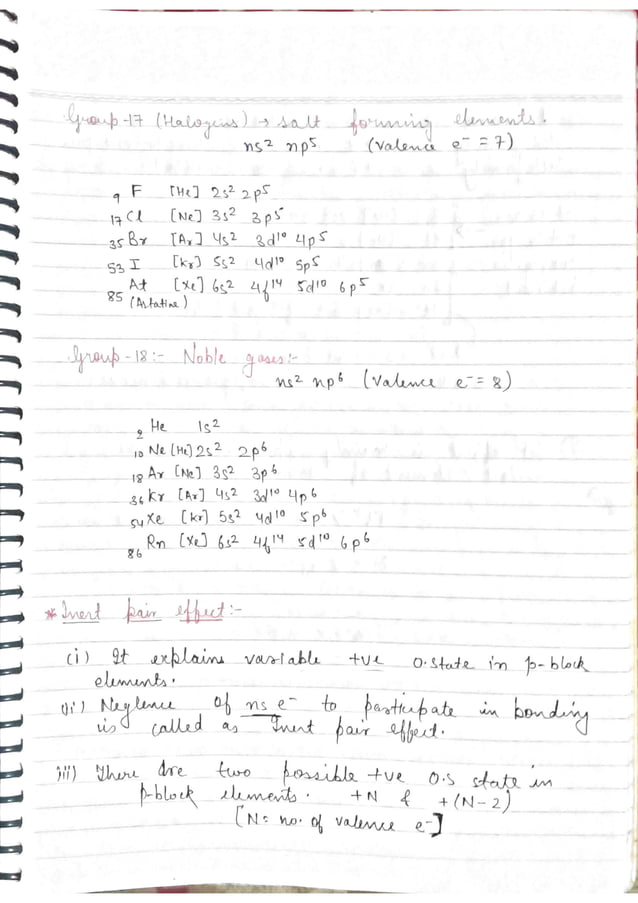 Group-17 (Halogens) → salt forming elements.
ns² np⁵ (valence e⁻ = 7)
₉ F [He] 2s² 2p⁵
₁₇ Cl [Ne] 3s² 3p⁵
₃₅ Br [Ar] 4s² 3d¹⁰ 4p⁵
₅₃ I [Kr] 5s² 4d¹⁰ 5p⁵
₈₅ At [Xe] 6s² 4f¹⁴ 5d¹⁰ 6p⁵
(Astatine)
Group-18:- Noble gases:-
ns² np⁶ (Valence e⁻ = 8)
₂ He 1s²
₁₀ Ne [He] 2s² 2p⁶
₁₈ Ar [Ne] 3s² 3p⁶
₃₆ Kr [Ar] 4s² 3d¹⁰ 4p⁶
₅₄ Xe [Kr] 5s² 4d¹⁰ 5p⁶
₈₆ Rn [Xe] 6s² 4f¹⁴ 5d¹⁰ 6p⁶
* Inert pair effect:-
(i) It explains variable +ve o.state in p-block
elements.
(ii) Neglence of ns e⁻ to participate in bonding
is called as Inert pair effect.
iii) There are two possible +ve O.S state in
p-block elements. +N & +(N-2)
[N= no. of valence e⁻]